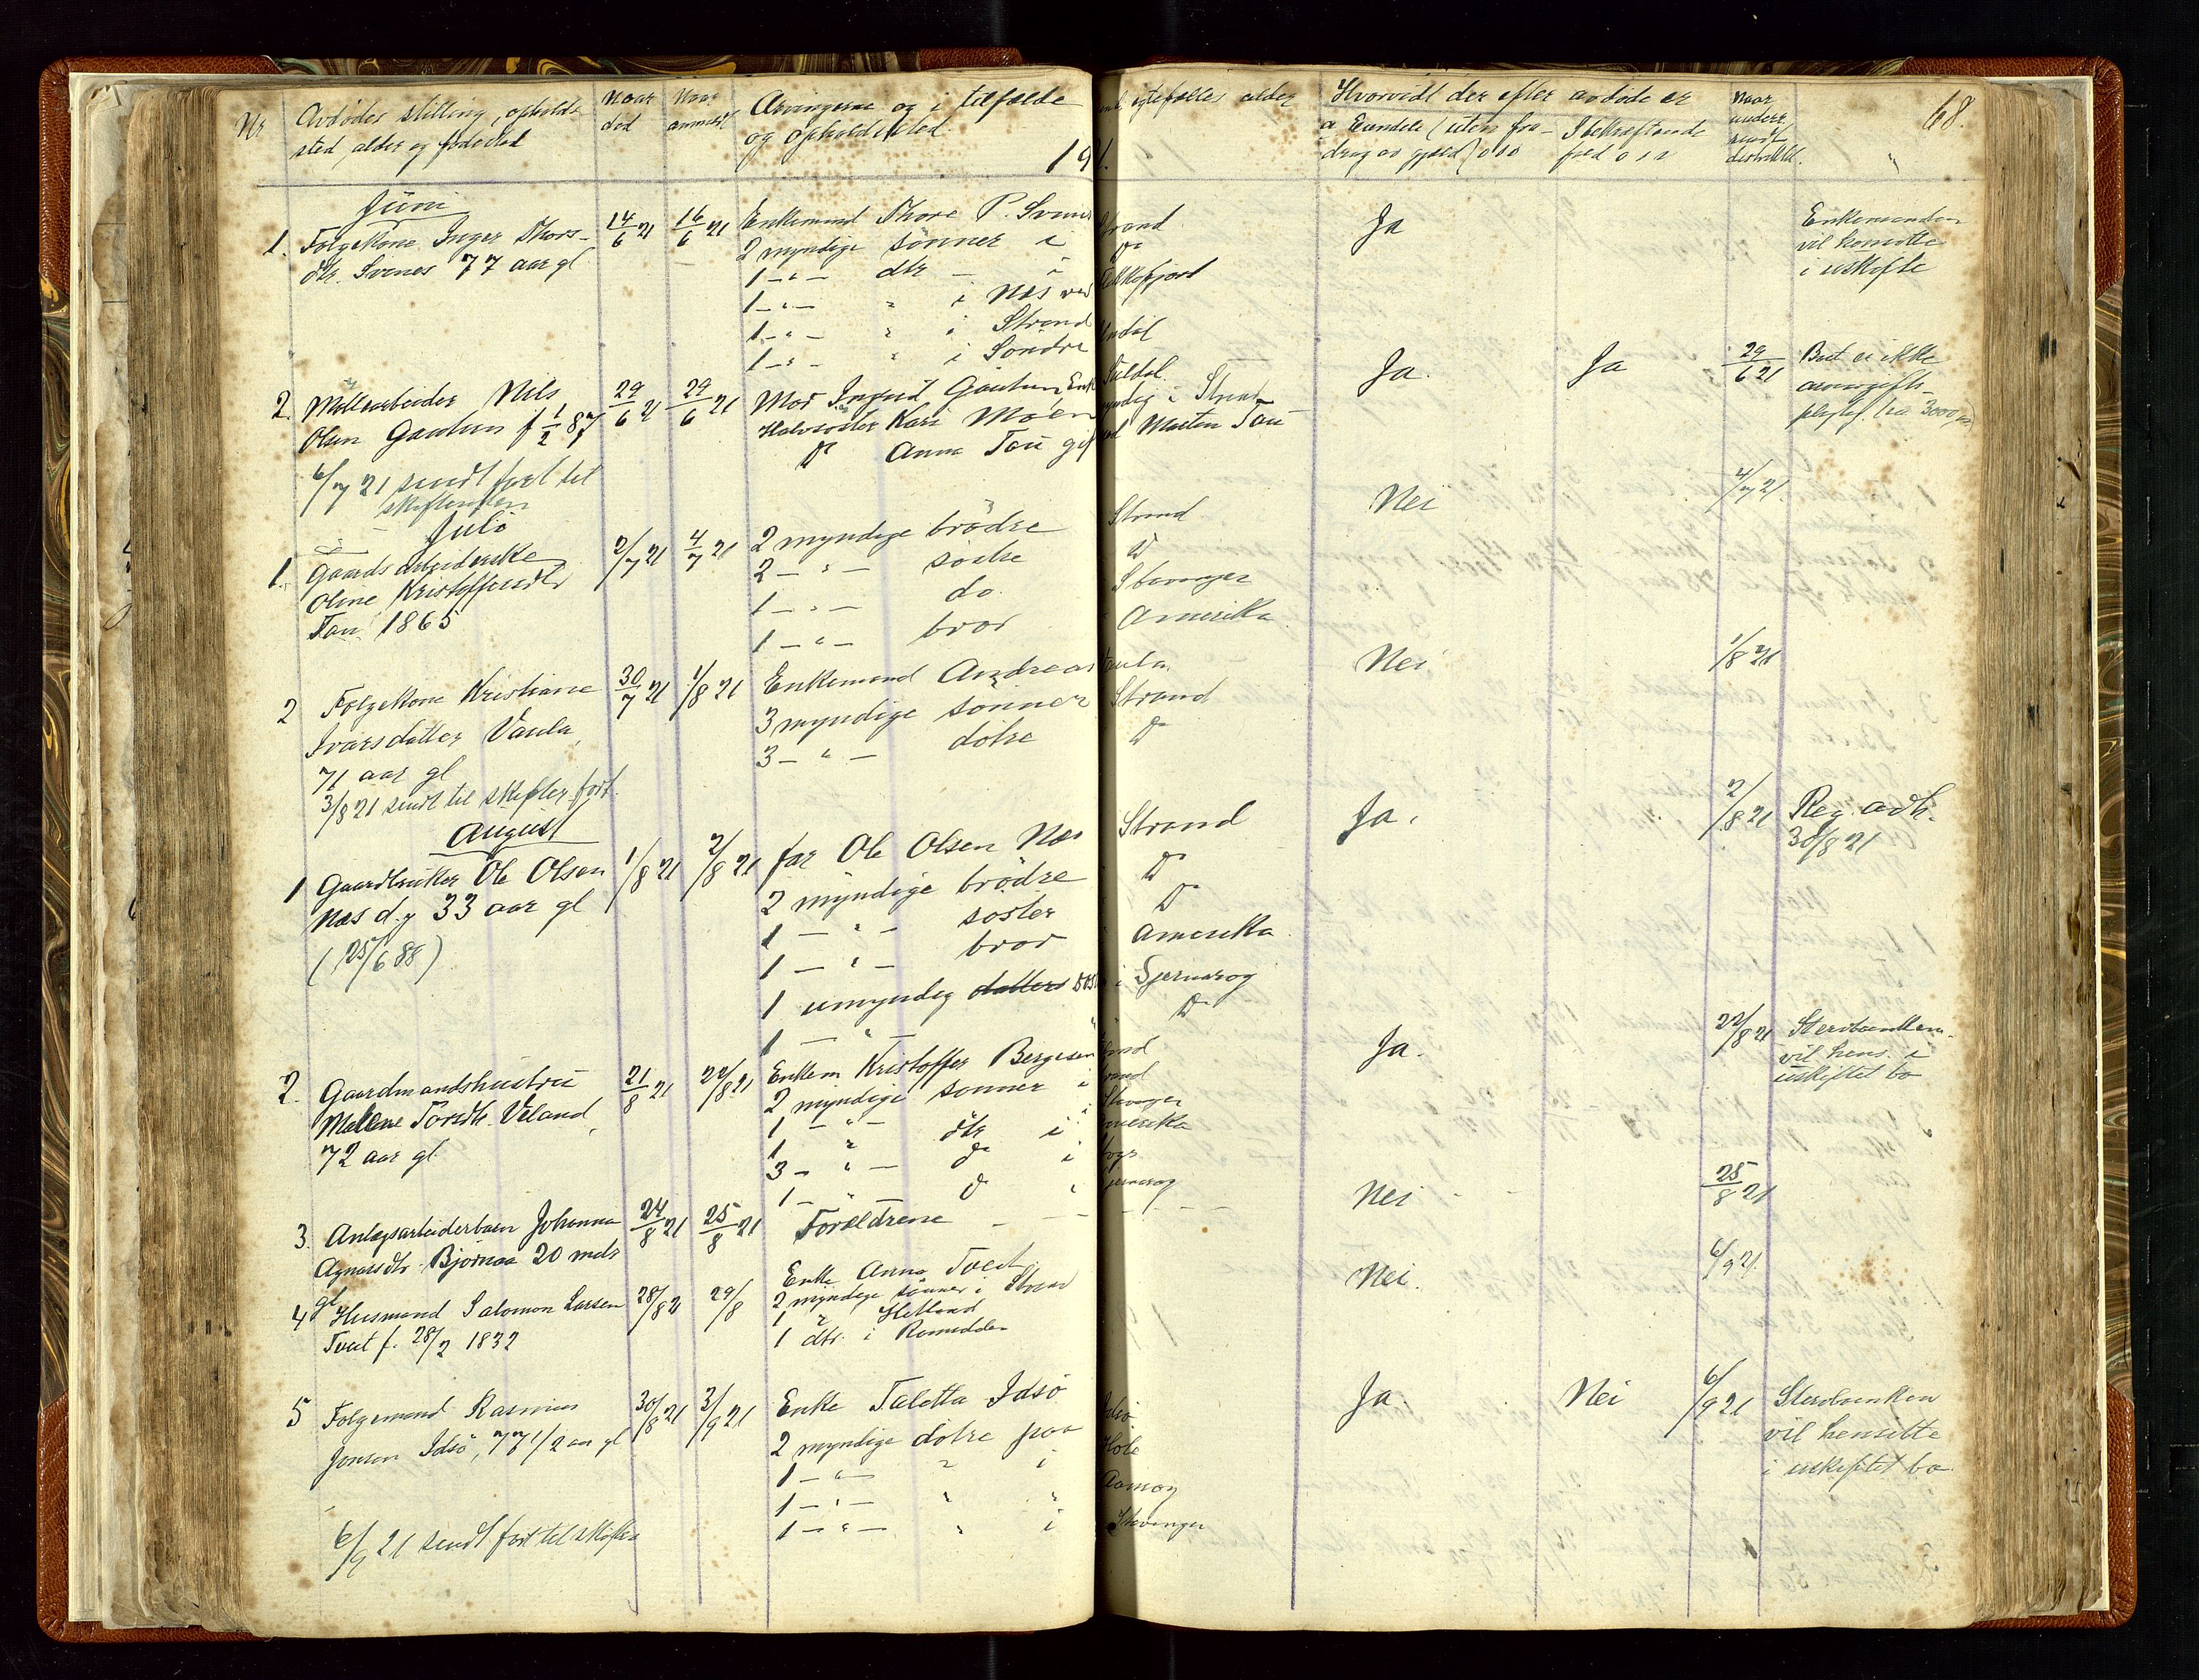 Nr Avdødes stilling, opholds- Naar Naar Arvingerne og i tilfælde egtefælles alder Hvorvidt der efter avdøde er Naar 68.
sted, alder og fødested død anmeldt og opholdssted a Eiendele (uten fra- underr.
drag av gjæld) o s v sendt
191.
Juni
1. Følgekone Inger Thors- 14/6 21 16/6 21 Enkemand Thore P. Svines Strand Ja Enkemanden
dtr. Svines 77 aar gl 2 myndige sønner i Do vil hensitte
1 - " - dtr - i i uskifte
1 - " - " i Næs ved Flekkefjord
1 - " - " i Strand
1 - " - " i Søndre
2. Møllearbeider Nils 29/6 21 29/6 21 Mor Ingrid Gautun, Enke Suldal Ja. Ja 29/6 21 Boet er ikke
Olsen Gautun f 1/2 87 Halvsøster Kari Moen myndig i Strand arveavgifts-
Do Anna Tau gift med Morten Tau pligtig ca. 3000
6/7 21 sendt fort til
skifteretten
Juli
1. Gaardsarbeiderske 2/7 21 4/7 21 2 myndige brødre Strand Nei 4/7 21
Oline Kristoffersdtr 2 - " - søstre Do
Tau 1865 1 - " - do. Stavanger
1 - " - bror Amerika
2 Følgekone Kristiane 30/7 21 1/8 21 Enkemand Andreas Vaula Nei 1/8 21
Ivarsdatter Vaula, 3 myndige sønner Strand
71 aar gl 3 - " - døtre Do
3/8 21 sendt til skifter. fort.
August
1 Gaardbruker Ole Olsen 1/8 21 2/8 21 far Ole Olsen Næs Strand Ja. 2/8 21 Reg. avh.
Næs d.y 33 aar gl 2 myndige brødre Do 30/8 21
(25/6 88) 1 - " - søster Do
1 - " - bror Amerika
1 umyndig datters i Sjernarøy
1 - " - Do
2. Gaardmandshustru 21/8 21 22/8 21 Enkem Kristoffer Bergesen Strand Ja. 22/8 21
Mallene Tordtr. Veland, 2 myndige sønner i Strand vil hens. i
72 aar gl. 1 - " - dtr i Stavanger uskiftet bo
1 " do i Amerika
3 - " - do i
1 - " - do i Sjernarøy
3. Anlægsarbeiderbarn Johanna 24/8 21 25/8 21 Forældrene Nei 25/8 21
Agnarsdtr. Bjørnaa 20 mdr
gl
4 Husmand Salomon Larsen 28/8 21 29/8 Enke Anna Tveit Nei. 6/9 21.
Tveit f. 28/2 1832 2 myndige sønner i Strand
1 " Hetland
1 dtr. i
5 Følgemand Rasmus 30/8 21 3/9 21 Enke Taletta Idsø Idsø Ja. Nei 6/9 21 Stervboenken
Jonsen Idsø, 77 1/2 aar gl 2 myndige døtre paa Hole vil hensitte
1 - " - " i Aamøy i uskiftet bo
1 - " - " "
1 - " - " i Stavanger
6/9 21 sendt fort til skifter